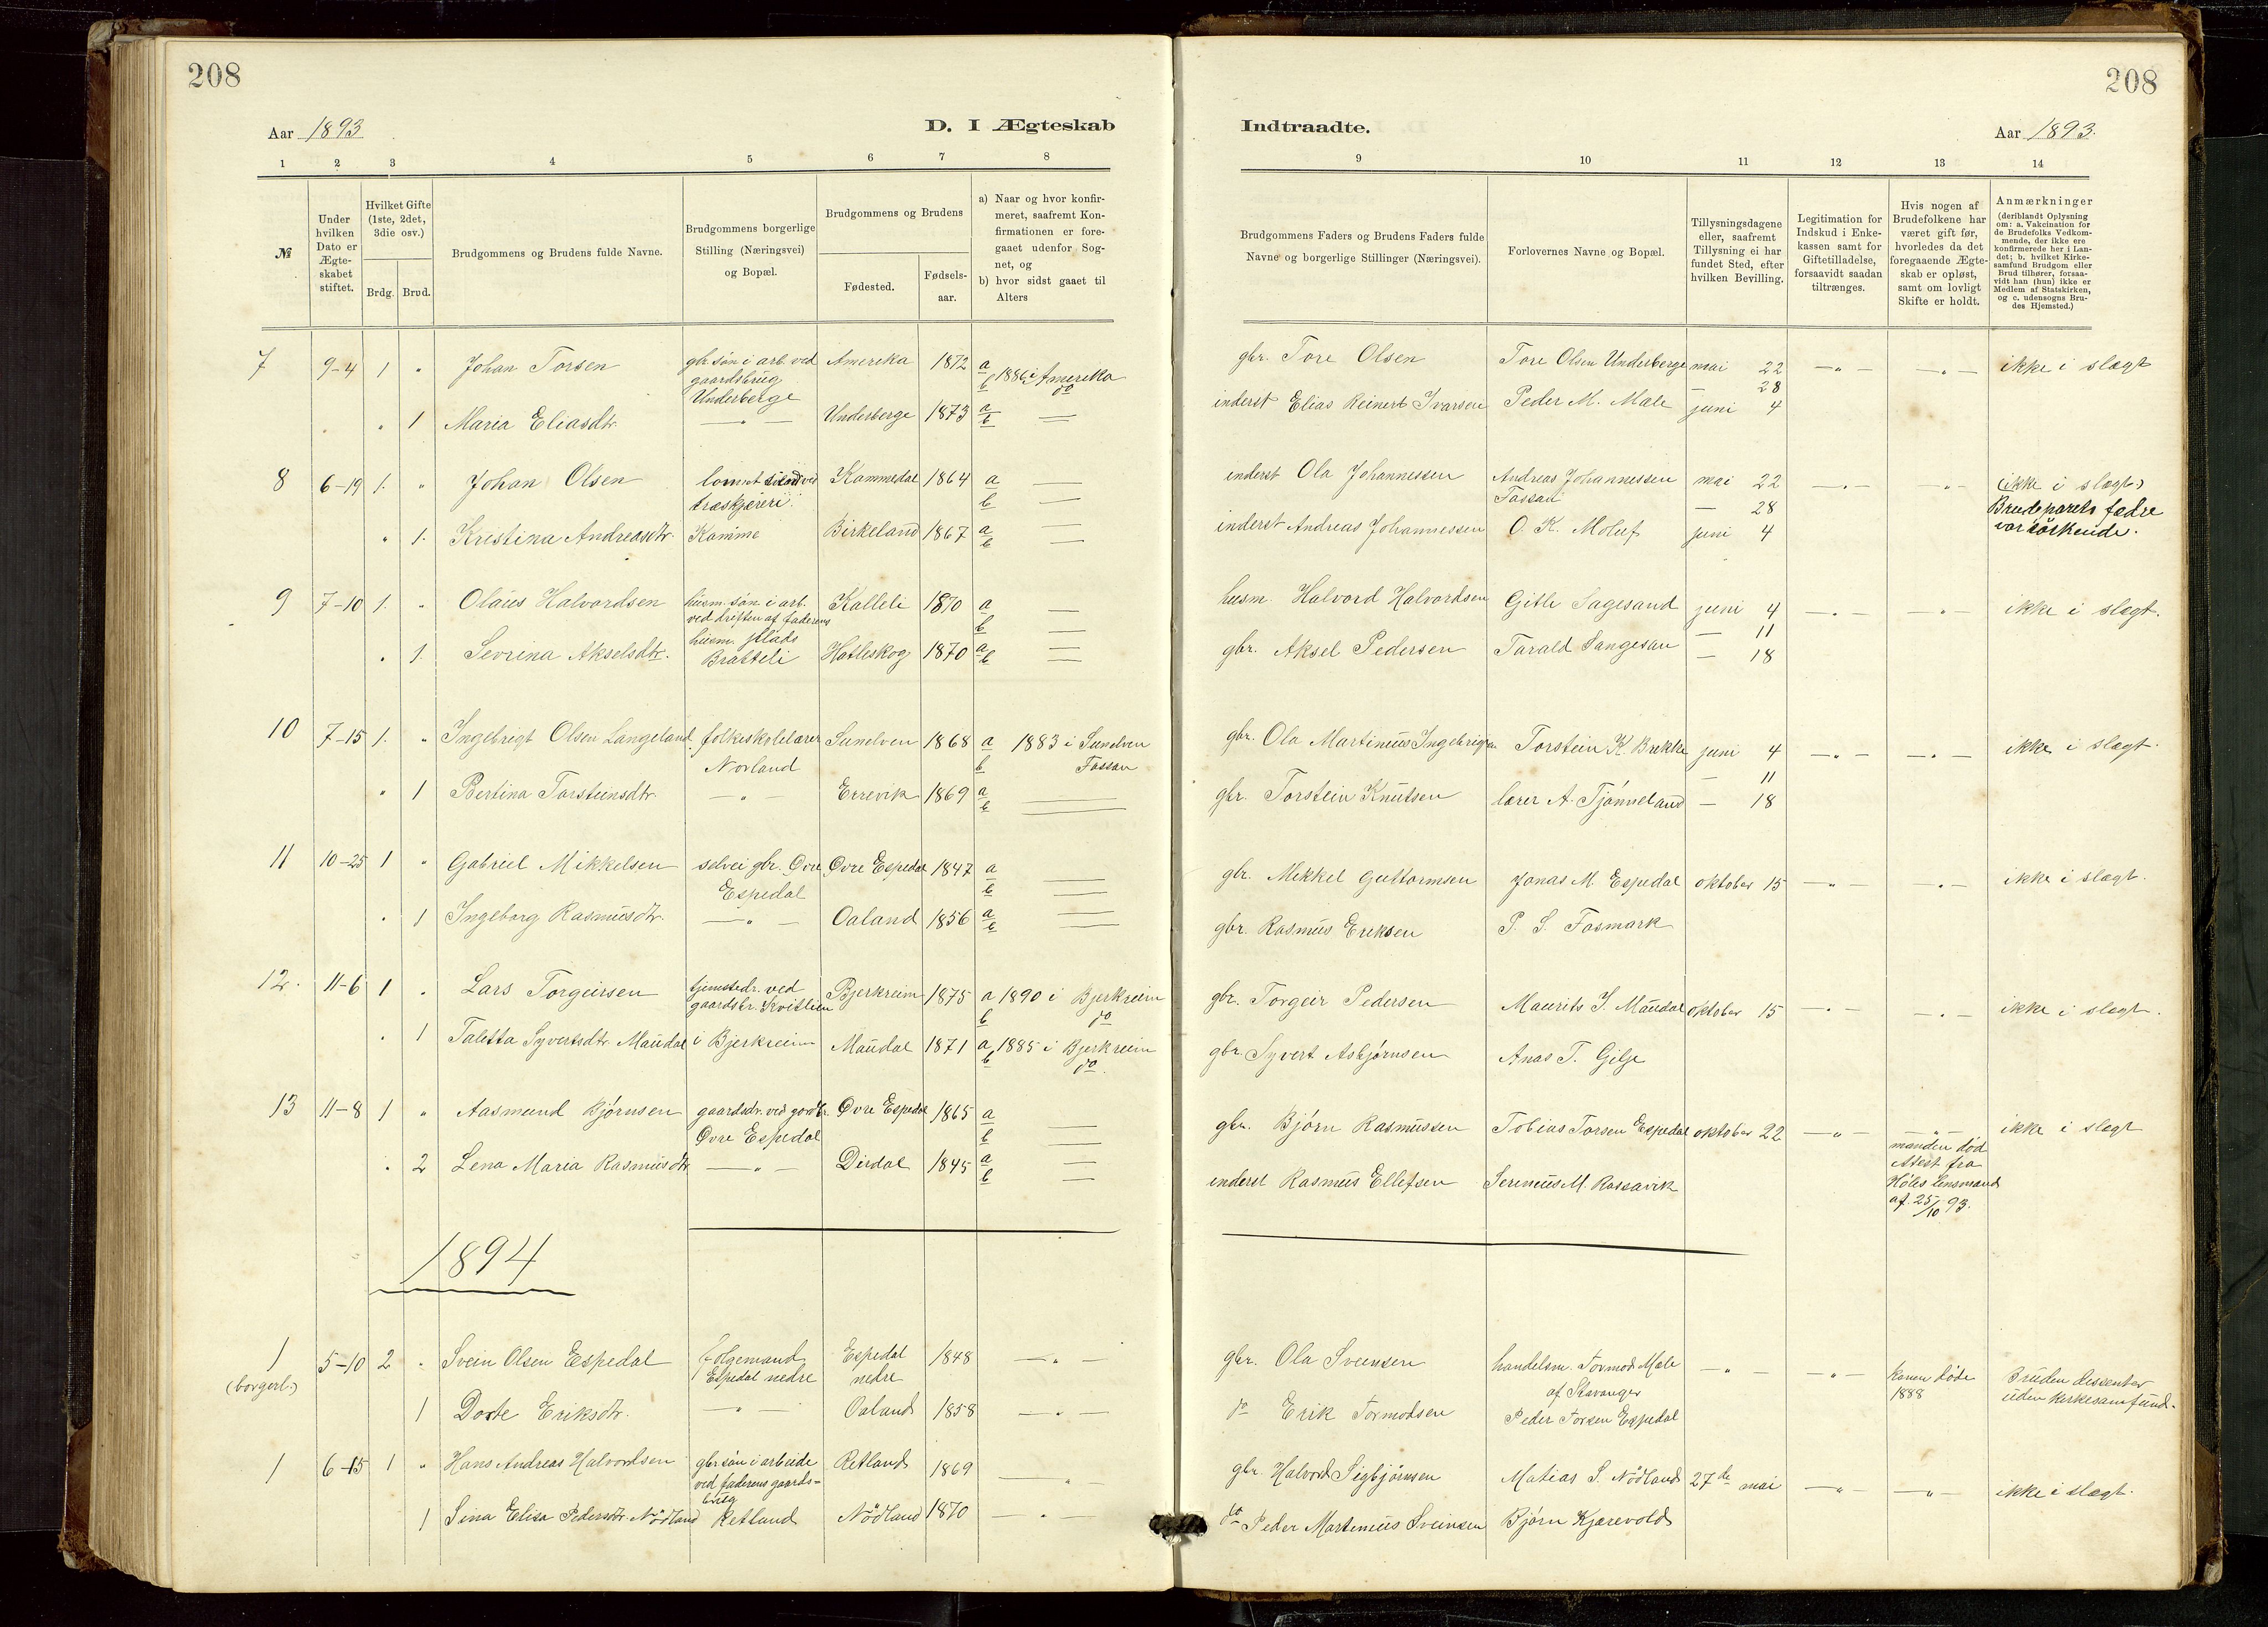 208
Aar 1893
D. I Ægteskab
1 2 3 4 5 6 7 8
№
Under hvilken Dato er Ægteskabet stiftet.
Hvilket Gifte (1ste, 2det, 3die osv.)
Brdg. Brud.
Brudgommens og Brudens fulde Navne.
Brudgommens borgerlige Stilling (Næringsvei) og Bopæl.
Brudgommens og Brudens
Fødested.
Fødselsaar.
a) Naar og hvor konfirmeret, saafremt Konfirmationen er foregaaet udenfor Sognet, og
b) hvor sidst gaaet til Alters
7 9-4 1 " Johan Torsen gbr. søn i arb. ved gaardsbrug Underberge Amerika 1872 a 1886 i Amerika b do
" 1 Maria Eliasdtr. — " — Underberge 1873 a b —
8 6-19 1. " Johan Olsen træskjæreri Kammedal 1864 a — b —
" 1. Kristina Andreasdtr. Kamme Birkeland 1867 a — b —
9 7-10 1. " Olaus Halvordsen husm. søn i arb. ved driften af faderens husm. plads Kalleli 1870 a — b —
" 1. Sevrina Akselsdtr. Bratteli Hatleskog 1870 a — b —
10 7-15 1. " Ingebrigt Olsen Langeland folkeskolelærer Norland Sunelven 1868 a 1883 i Sunelven b Fossan
" 1 Bertina Torsteinsdtr. — " — Errevik 1869 a — b —
11 10-25 1 " Gabriel Mikkelsen selvei gbr. Øvre Espedal Øvre Espedal 1847 a — b —
" 1 Ingeborg Rasmusdtr. — " — Oaland 1856 a — b —
12. 11-6 1 " Lars Torgeirsen tjenstedr. ved gaardsbr. Kvitlein Bjerkreim 1875 a 1890 i Bjerkreim b do
" 1 Taletta Syvertsdtr. Maudal i Bjerkreim Maudal 1871 a 1885 i Bjerkreim b do
13 11-8 1 " Aasmund Bjørnsen gaardsdr. ved gardbr. Øvre Espedal Øvre Espedal 1865 a — b —
" 2 Lena Maria Rasmusdtr — " — Dirdal 1845 a — b —
1894
1 (borgerl.) 5-10 2 " Svein Olsen Espedal følgemand Espedal nedre Espedal nedre 1848 — " —
1 Dorte Eriksdtr. — " — Oaland 1858 — " —
1 6-15 1 " Hans Andreas Halvordsen gbr søn i arbeide ved faderens gaardsbrug Retland 1869 — " —
1 Sina Elisa Pedersdtr. Nödland Retland Nödland 1870 — " —
208
Indtraadte.
Aar 1893.
9 10 11 12 13 14
Brudgommens Faders og Brudens Faders fulde Navne og borgerlige Stillinger (Næringsvei).
Forlovernes Navne og Bopæl.
Tillysningsdagene eller, saafremt Tillysning ei har fundet Sted, efter hvilken Bevilling.
Legitimation for Indskud i Enkekassen samt for Giftetilladelse, forsaavidt saadan tiltrænges.
Hvis nogen af Brudefolkene har været gift før, hvorledes da det foregaaende Ægteskab er opløst, samt om lovligt Skifte er holdt.
Anmærkninger (deriblandt Oplysning om: a. Vakcination for de Brudefolks Vedkommende, der ikke ere konfirmerede her i Landet; b. hvilket Kirkesamfund Brudgom eller Brud tilhører, forsaavidt han (hun) ikke er Medlem af Statskirken, og c. udensogns Brudes Hjemsted.)
gbr. Tore Olsen Tore Olsen Underberge mai 22 — " — — " — ikke i slægt
— 28
inderst Elias Reinert Ivarsen Peder M. Mæle juni 4
inderst Ola Johannessen Andreas Johannessen Fossan mai 22 — " — — " — (ikke i slægt)
— 28 Brudeparets fædre var søskende.
inderst Andreas Johannessen O. K. Moluf juni 4
husm. Halvord Halvordsen Gitle Sagesand juni 4 — " — — " — ikke i slægt.
— 11
gbr. Aksel Pedersen Tarald Sangesan — 18
gbr. Ola Martinus Ingebrigtsen Torstein K. Brekke juni 4 — " — — " — ikke i slægt.
— 11
gbr. Torstein Knutsen lærer A. Tjønneland — 18
gbr. Mikkel Guttormsen Jonas M. Espedal oktober 15 — " — — " — ikke i slægt.
gbr. Rasmus Eriksen P. S. Fosmark
gbr. Torgeir Pedersen Maurits S. Maudal oktober 15 — " — — " — ikke i slægt.
gbr. Syvert Asbjørnsen Anas T. Gilje
gbr. Bjørn Rasmussen Tobias Torsen Espedal oktober 22 — " — — " — ikke i slægt
manden død Attest fra Høles lensmand af 25/10 93.
inderst Rasmus Ellefsen Serenius M. Rossavik
gbr. Ola Sveinsen handelsm. Tormod Mæle af Stavanger — " — — " — konen døde 1888 Bruden dissenter uden kirkesamfund.
do Erik Tormodsen Peder Torsen Espedal
gbr. Halvord Sigbjørnsen Matias S. Nödland 27de mai — " — — " — ikke i slægt.
do Peder Martinius Sveinsen Bjørn Kjærevold